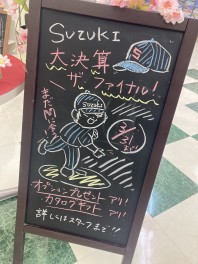 SUZUKI
大決算
ザ・ファイナル!
S
まだ間に合う
Suzuki
オプションプレゼント アリ!
カタログギフト アリ!
詳しくはスタッフまで!!